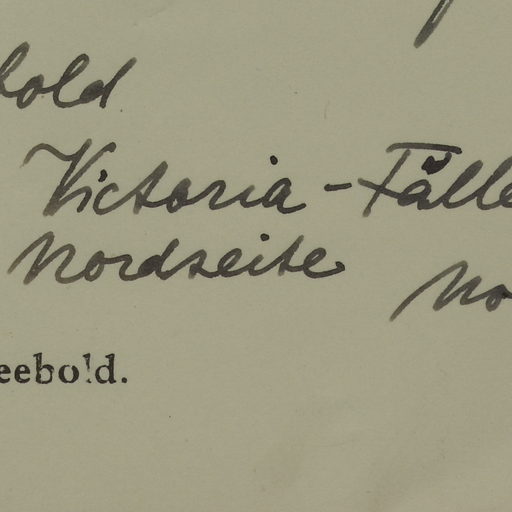 bold
Victoria - Fälle
Nordseite
No
eebold.